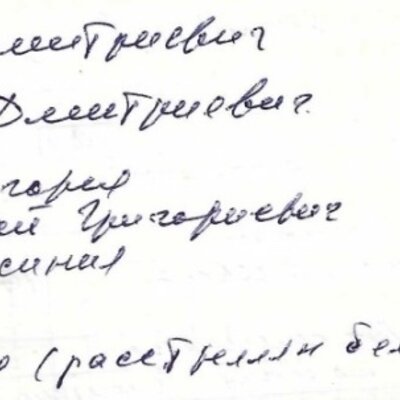 митриевич
Дмитриевич
гория
ей Григориевич
синия
о (расстрелян бел